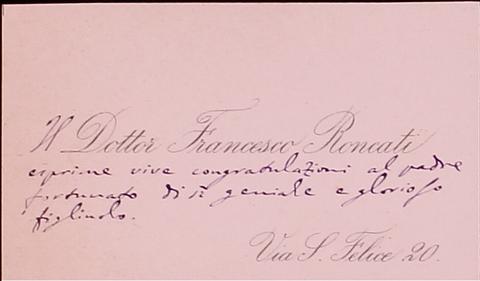 Il Dottor Francesco Roncati
esprime vive congratulazioni al padre
fortunato di sì geniale e glorioso
figliuolo.
Via S. Felice 20.